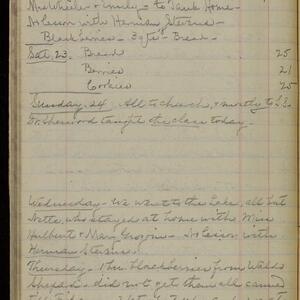 Mrs Wheeler & Emily - to Tank Home -
Lesson with Herman Stevens -
Blackberries - 39 qts - Bread -
Sat. 23. Bread 25
Berries 21
Cookies 25
Sunday. 24 All to church, & to S.S.
Dr. Sherwood taught the class today.
Wednesday - We went to the Lake, all but
Nette, who stayed at home with Miss
Hulbert & Mary Groggin - Lesson with
Herman Stevens.
Thursday - The blackberries from Walks
did not get them all canned